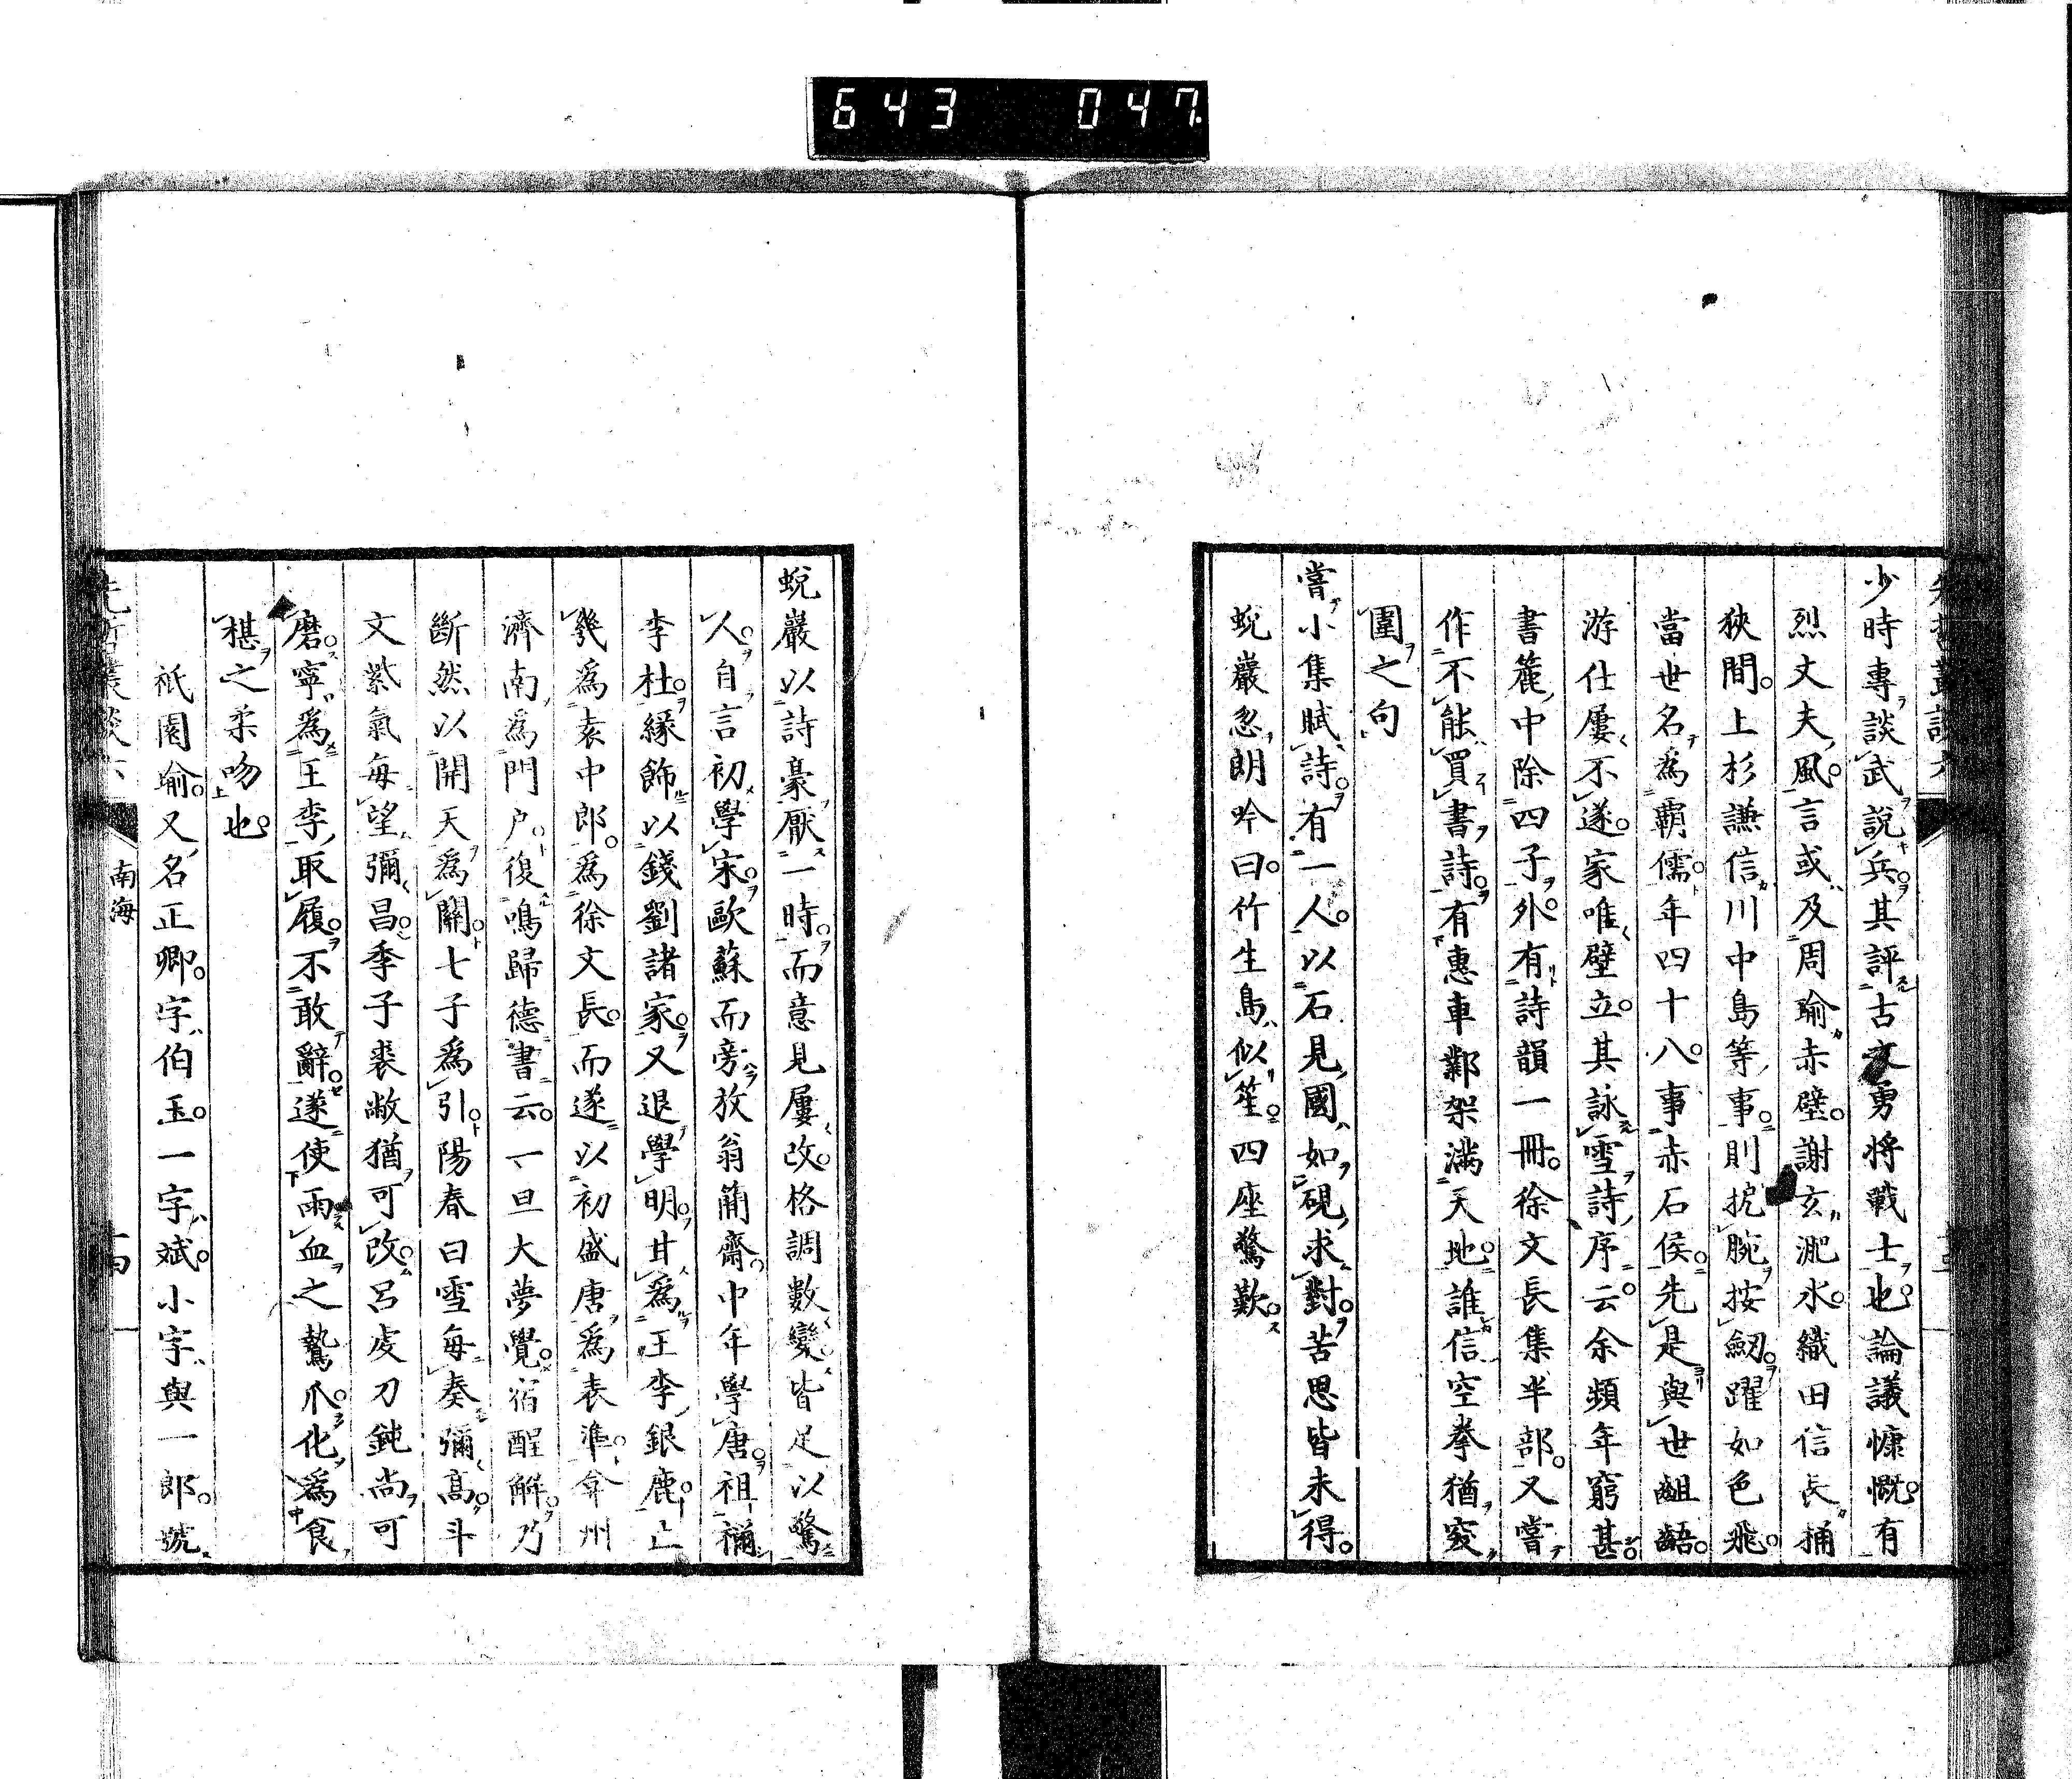 643 047.
先哲叢談六
少時專談武說兵。其評古文勇將戰士也。論議慷慨。有
烈丈夫風。言或及周瑜赤壁。謝玄淝水。織田信長桶
狹間。上杉謙信川中島等事。則扼腕按劒。躍如色飛。
當世名爲覇儒。年四十八。事赤石侯。先是與世齟齬。
游仕屢不遂。家唯壁立。其詠雪詩序云。余頻年窮甚。
書簏中除四子外。有詩韻一冊。徐文長集半部。又嘗
作不能買書詩。有惠車鄴架滿天地。誰信空拳猶突
圍之句
嘗小集賦詩。有一人。以石見國如硯求對。苦思皆未得。
蛻巖忽朗吟曰。竹生島似笙。四座驚歎。
蛻巖以詩豪厭一時。而意見屢改。格調數變。皆足以驚
人。自言初學宋。歐蘇而旁放翁簡齋。中年學唐。祖禰
李杜。緣飾以錢劉諸家。又退學明。甘爲王李銀鹿。亡
幾爲袁中郎。爲徐文長。而遂以初盛唐爲表準。弇州
濟南爲門戶。復鳴歸德書云。一旦大夢覺。宿酲解。乃
斷然以開天爲關。七子爲引。陽春白雪每奏彌高。斗
文紫氣每望彌昌。季子裘敝猶可改。呂虔刀鈍尚可
磨。寧爲王李取履。不敢辭。遂使兩血之鷙爪。化爲食
椹之柔吻也。
祇園瑜。又名正卿。字伯玉。一字斌。小字與一郎。號
先哲叢談六
南海